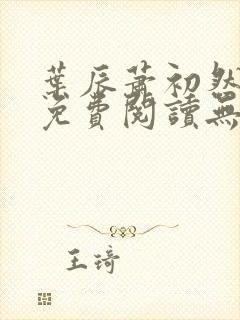 葉辰蕭初然
免費閱讀無
王琦